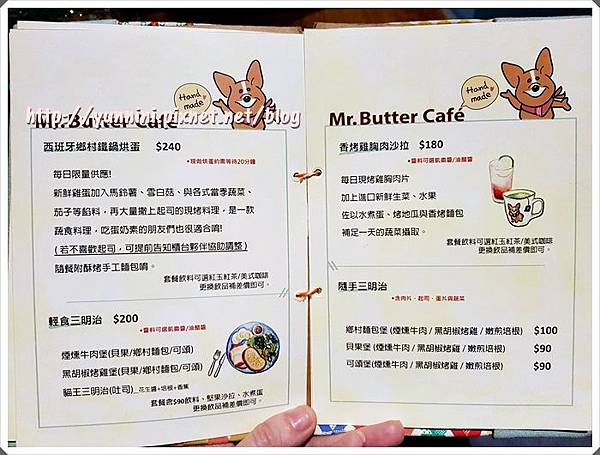 Hand made
http://yuminiqi.pixnet.net/blog
Mr.Butter Café
西班牙鄉村鐵鍋烘蛋 $240
•現做烘蛋約需等待20分鐘
每日限量供應!
新鮮雞蛋加入馬鈴薯、雪白菇、與各式當季蔬菜、
茄子等餡料，再大量撒上起司的現烤料理，是一款
蔬食料理，吃蛋奶素的朋友們也很適合唷!
( 若不喜歡起司，可提前告知櫃台夥伴協助調整 )
隨餐附酥烤手工麵包唷。
套餐飲料可選紅玉紅茶/美式咖啡
更換飲品補差價即可。
輕食三明治 $200
•醬料可選凱薩醬/油醋醬
煙燻牛肉堡(貝果/鄉村麵包/可頌)
黑胡椒烤雞堡(貝果/鄉村麵包/可頌)
貓王三明治(吐司)_花生醬+培根+香蕉
套餐含$90飲料、堅果沙拉、水煮蛋
更換飲品補差價即可。
Hand made
Mr.Butter Café
香烤雞胸肉沙拉 $180
•醬料可選凱薩醬/油醋醬
每日現烤雞胸肉片
加上進口新鮮生菜、水果
佐以水煮蛋、烤地瓜與香烤麵包
補足一天的蔬菜攝取。
套餐飲料可選紅玉紅茶/美式咖啡
更換飲品補差價即可。
隨手三明治
•含肉片、起司、蛋片與蔬菜
鄉村麵包堡 (煙燻牛肉 / 黑胡椒烤雞 / 嫩煎培根) $100
貝果堡 (煙燻牛肉 / 黑胡椒烤雞 / 嫩煎培根) $90
可頌堡 (煙燻牛肉 / 黑胡椒烤雞 / 嫩煎培根) $90